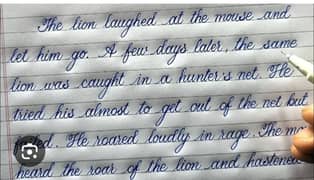 The lion laughed at the mouse and
let him go. A few days later, the same
lion was caught in a hunter's net. He
tried his almost to get out of the net but
He roared loudly in rage. The
heard the roar of the lion and hastened